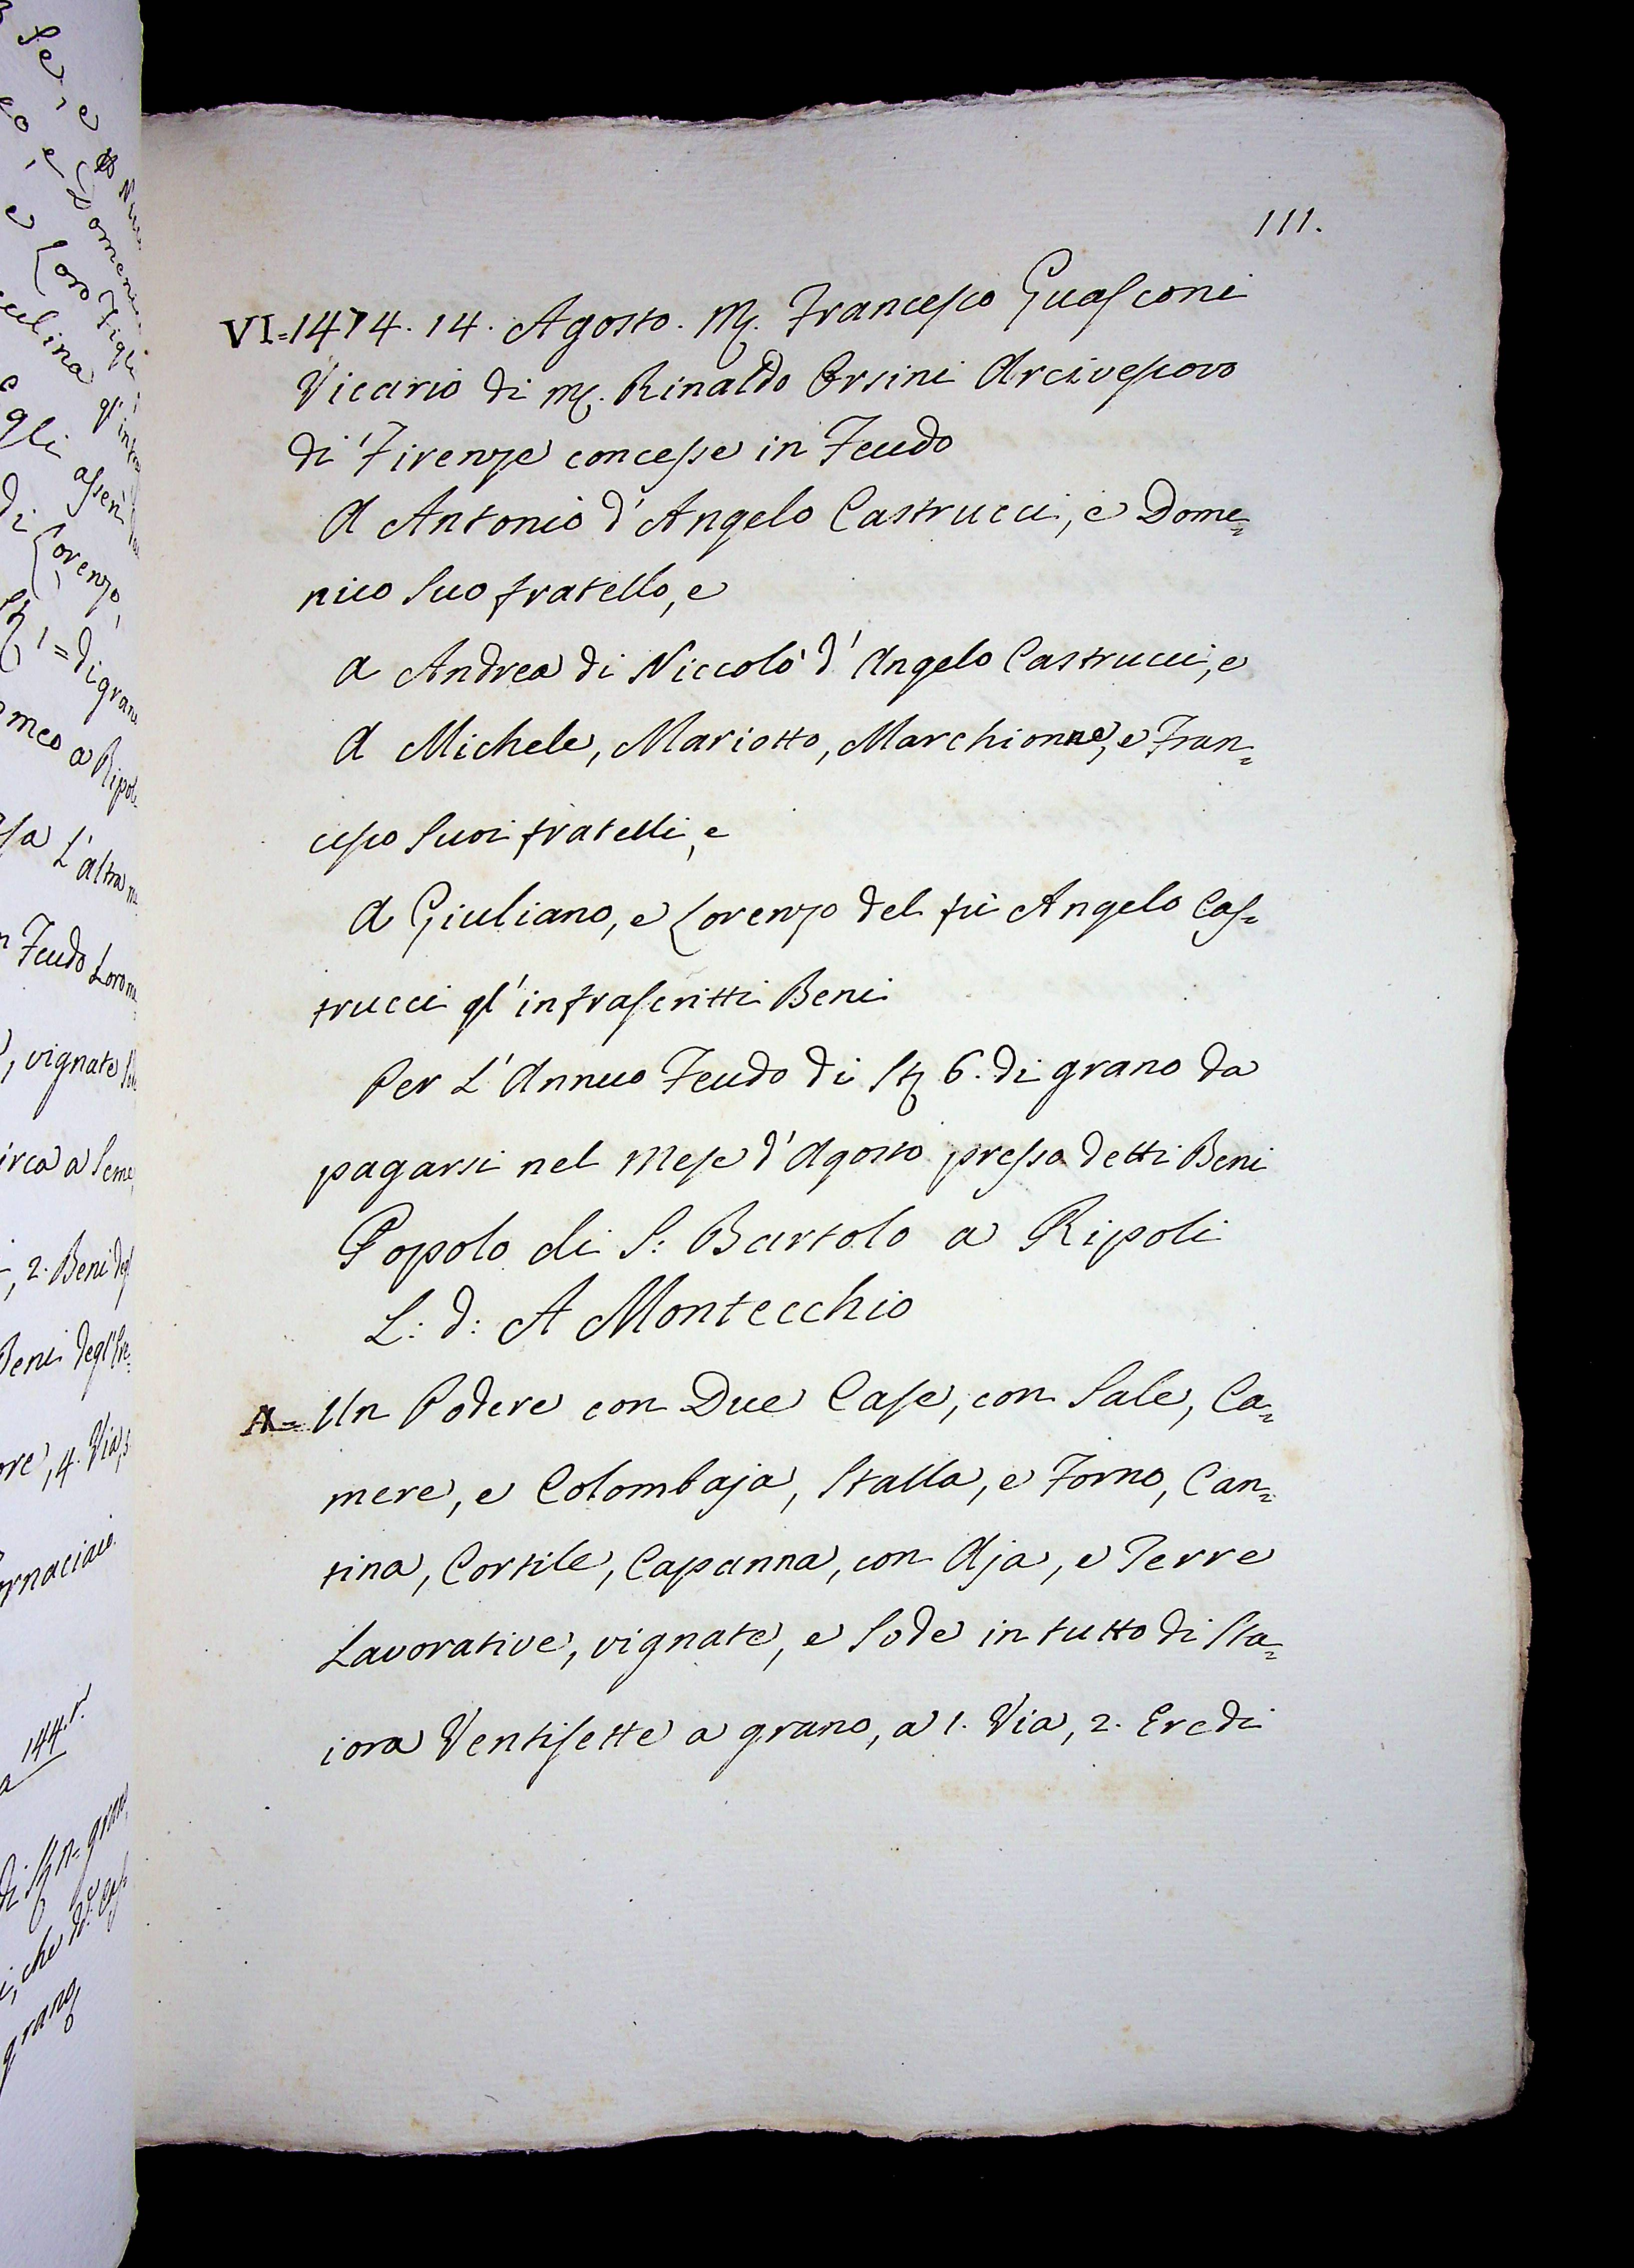 111.
VI=1474. 14. Agosto. M. Francesco Guasconi
Vicario di M. Rinaldo Orsini Arcivescovo
di Firenze concesse in Feudo
A Antonio d'Angelo Castrucci, e Dome=
nico Suo fratello, e
A Andrea di Niccolò d'Angelo Castrucci, e
A Michele, Mariotto, Marchionne, e Fran=
cesco Suoi fratelli, e
A Giuliano, e Lorenzo del fù Angelo Cas=
trucci gl'infrascritti Beni
Per L'Annuo Feudo di St 6. di grano da
pagarsi nel Mese d'Agosto presso detti Beni
Popolo di S: Bartolo a Ripoli
L: d: A Montecchio
A= Un Podere con Due Case, con Sale, Ca=
mere, e Colombaja, Stalla, e Forno, Can=
tina, Cortile, Capanna, con Aja, e Terre
Lavorative, vignate, e Sode in tutto di Sta=
iora Ventisette a grano, a 1. Via, 2. Eredi